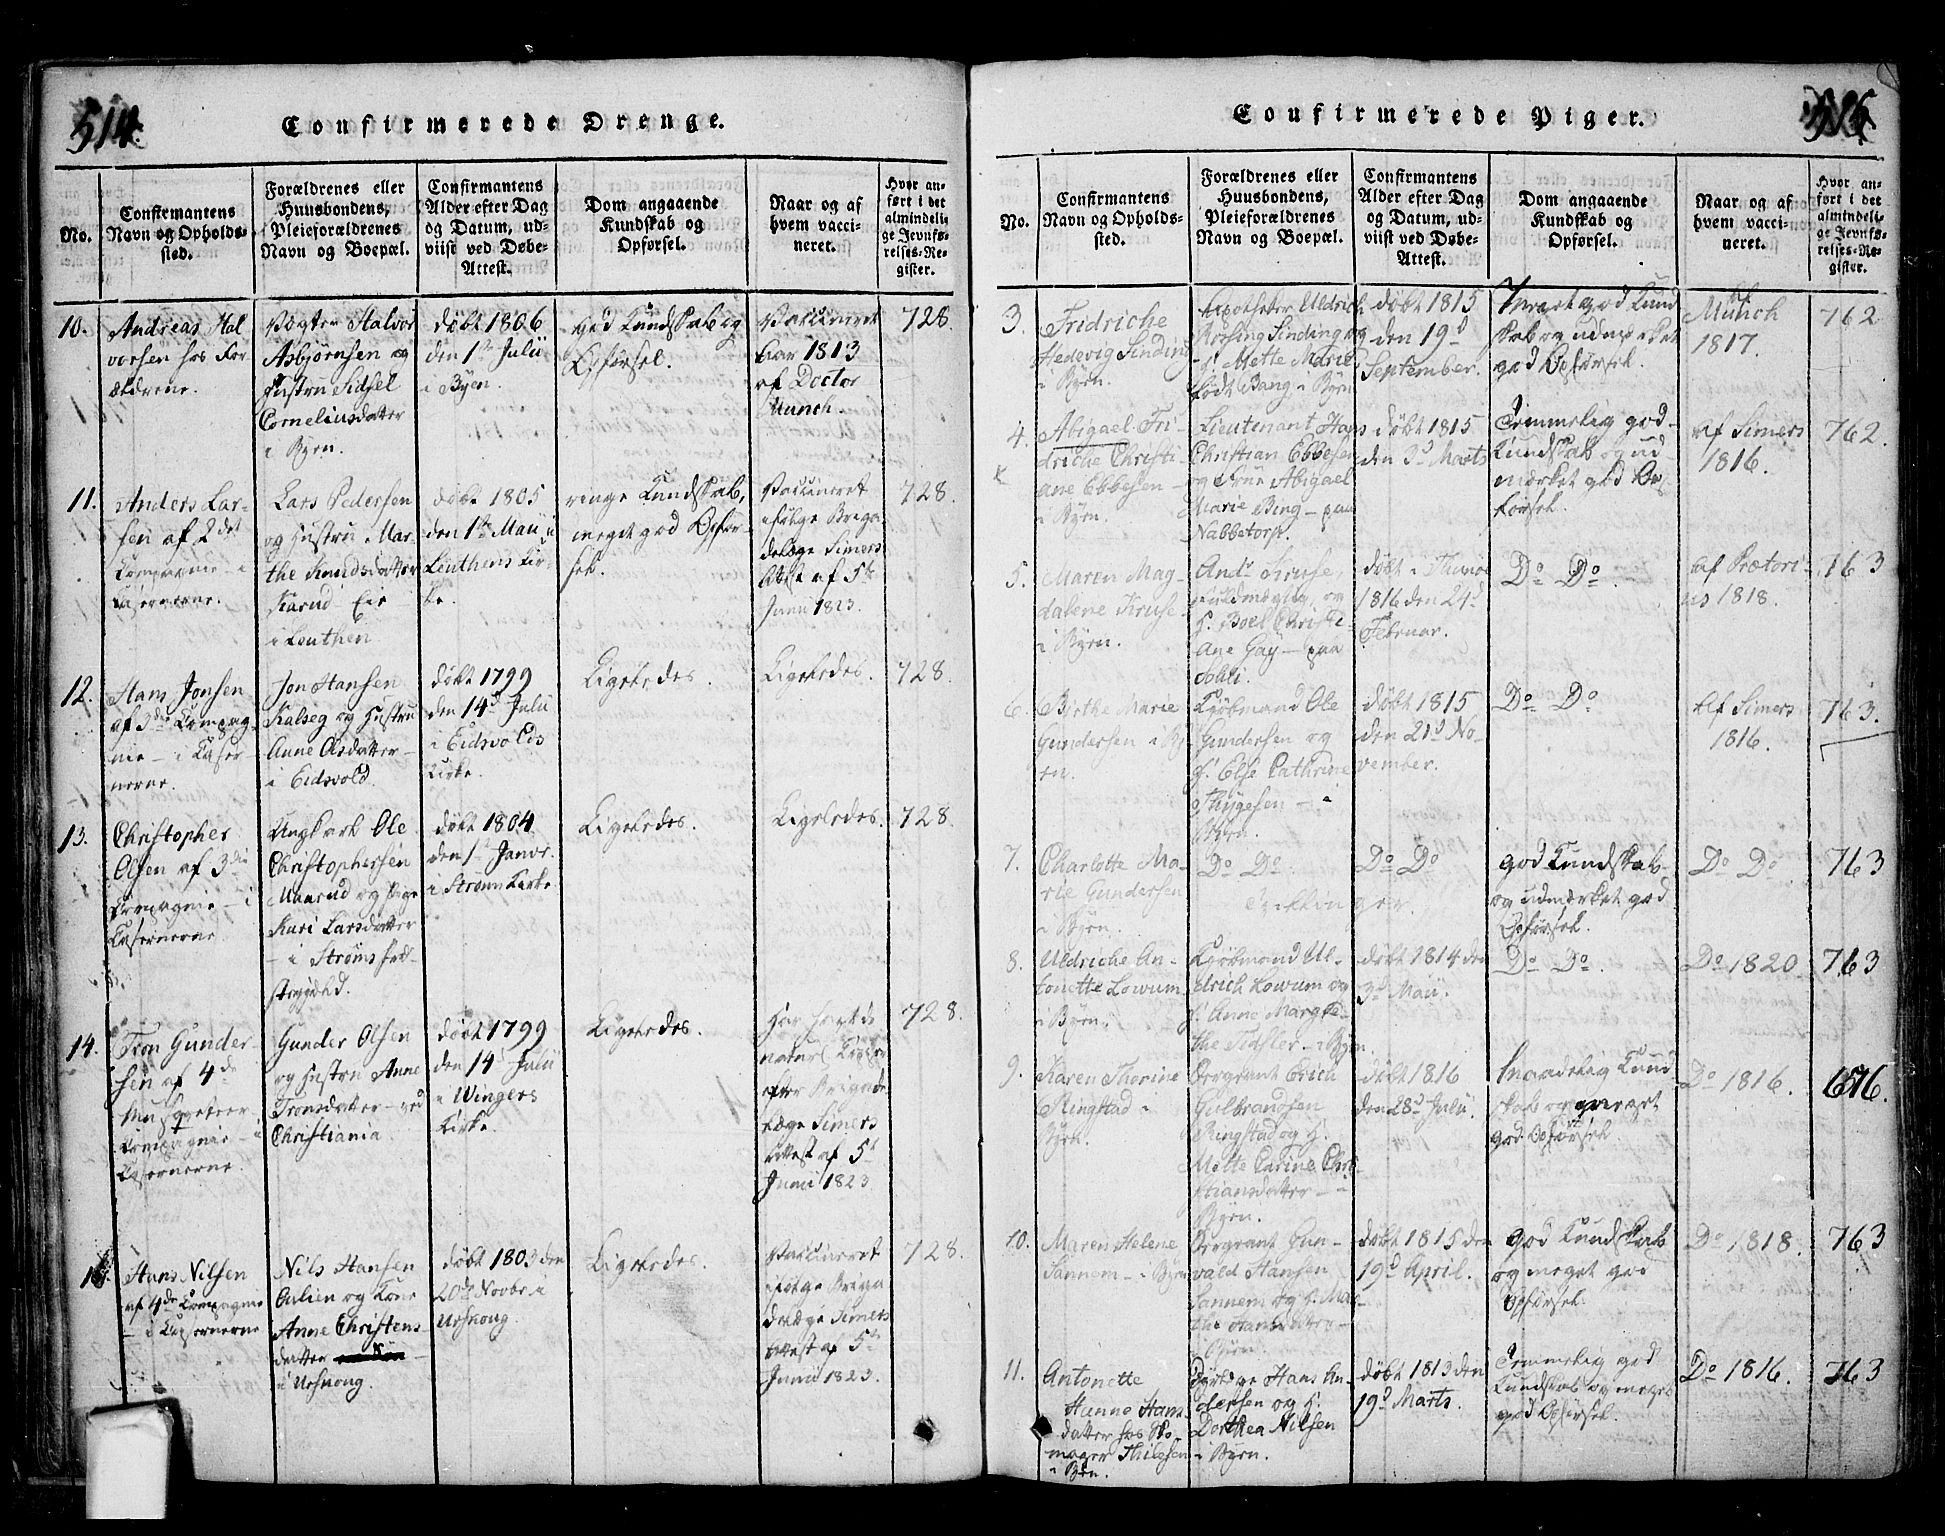 514.
Confirmerede Drenge.
No.
Confirmantens
Navn og Opholds-
sted.
Forældrenes eller
Huusbondens,
Pleieforældrenes
Navn og Boepæl.
Confirmantens
Alder efter Dag
og Datum, ud-
viist ved Døbe-
Attest.
Dom angaaende
Kundskab og
Opførsel.
Naar og af
hvem vacci-
neret.
Hvor an-
ført i det
almindeli-
ge Jevnfø-
relses-Re-
gister.
10.
Andreas Hal
vorsen hos For
ældrene.
Vægter Halvor
Asbjørnsen og
Hustru Sidsel
Corneliusdatter
i Byen.
døbt 1806
den 1ste Julii
i Byen.
god Kundskab og
Opførsel.
Vaccineret
har 1813
af Doctor
Munch.
728
11.
Anders Lar-
sen af 2det
Compagnie - i
Casernerne.
Lars Pedersen
og Hustru Mar-
the Knudsdatter
i Leuthen
døbt 1805
den 1ste Maii i
Leuthens Kir-
ke.
ringe Kundskab,
meget god Opfør-
sel.
Vaccineret
ifølge Briga
delæge Simers
Attest af 5te
Junii 1823.
728.
12.
Hans Jonsen
af 3die Compag-
nie - i Caser-
nerne.
Jon Hansen
Kalseg og Hustru
Anne Olsdatter -
i Eidsvold.
døbt 1799
den 14d Julii
i Eidsvolds
Kirke.
Ligeledes.
Ligeledes.
728.
13.
Christopher
Olsen af 3die
Compagnie - i
Casernerne.
Ungkarl Ole
Christophersen
Maarud og Pige
Kari Larsdatter
- i Strøms Præ-
stegjeld.
døbt 1804
den 1ste Janvr.
i Strøm Kirke
Ligeledes.
Ligeledes.
728
14.
Tron Gunder-
sen af 4de
Musqveteer-
Compagnie - i
Casernerne.
Gunder Olsen
og Hustru Anne
Tronsdatter - ved
Christiania.
døbt 1799
den 14d Julii
i Wingers
Kirke.
Ligeledes.
har havt de
naturl. Kopper
efter Brigade
læge Simers
Attest af 5te
Junii 1823.
728.
15.
Hans Nilsen
af 4de Compagnie
- i Casernerne
Nils Hansen
og Kone
Anne Christens-
datter
i Urskoug.
døbt 1803 den
20de Novbr. i
Urskoug.
Ligeledes.
Vaccineret
ifølge Briga
delæge Simers
Attest af 5te
Junii 1823.
728.
515.
Confirmerede Piger.
No.
Confirmantens
Navn og Opholds-
sted.
Forældrenes eller
Huusbondens,
Pleieforældrenes
Navn og Boepæl.
Confirmantens
Alder efter Dag
og Datum, ud-
viist ved Døbe-
Attest.
Dom angaaende
Kundskab og
Opførsel.
Naar og af
hvem vacci-
neret.
Hvor an-
ført i det
almindeli-
ge Jevnfø-
relses-Re-
gister.
3.
Fridriche
Hedevig Sinding
i Byen.
Apotheker Uldrich
Rosing Sinding og
H. Mette Marie
født Bang, i Byen
døbt 1815
den 19d
September.
Meget god Kund
skab og udmærket
god Opførsel.
af
Munch
1817.
762
4.
Abigael Fri-
driche Christi-
ane Ebbesen -
i Byen.
Lieutenant Hans
Christian Ebbesen
og Kone Abigael
Marie Bing - paa
Nabbetorp.
døbt 1815
den 3d Marts
Temmelig god
Kundskab og ud-
mærket god Op-
førsel.
af Simers
1816.
762.
5.
Maren Mag-
dalene Kruse -
i Byen.
Andr. Kruse,
og
H. Boel Christi-
ane Gay - paa
Solli.
døbt i
1816 den 24d
Februar.
Do Do.
af Prætori-
us 1818.
763
6.
Byrthe Marie
Gundersen i By-
en.
Kjøbmand Ole
Gundersen og
H. Else Cathrine
Thygesen - i
Byen.
døbt 1815
den 21d No-
vember.
Do Do.
af Simers
1816.
763.
7.
Charlotte Ma-
rie Gundersen
i Byen.
Do Do
Tvillinger.
Do Do
god Kundskab
og udmærket god
Opførsel.
Do Do.
763
8.
Uldriche An-
tonette Lowum
i Byen.
Kjøbmand Ul-
drich Lowum og
H. Anne Margre-
the Fidsler - i Byen
døbt 1814 den
3d Maii.
Do Do.
Do 1820.
763
9.
Karen Thorine
Ringstad i
Byen.
Sergeant Erich
Gulbrandsen
Ringstad og H.
Mette Carine Chri-
stiansdatter - i
Byen.
døbt 1816
den 28d Julii.
Maadelig Kund
skab og meget
god Opførsel.
Do 1816.
676.
10.
Maren Helene
Sannem - i Byen
Sergeant Gun-
vald Hansen
Sannem og H. Mar-
the Hansdatter -
i Byen.
døbt 1815 den
19d April.
god Kundskab
og meget god
Opførsel.
Do 1818.
763
11.
Antonette
Hanne Hans
datter hos Po-
mager Thilesen
i Byen.
Hans An-
dersen og H.
Dorthea Nilsen
i Byen.
døbt 1813 den
19d Marts.
Temmelig god
Kundskab og meget
god Opførsel.
Do 1816.
763